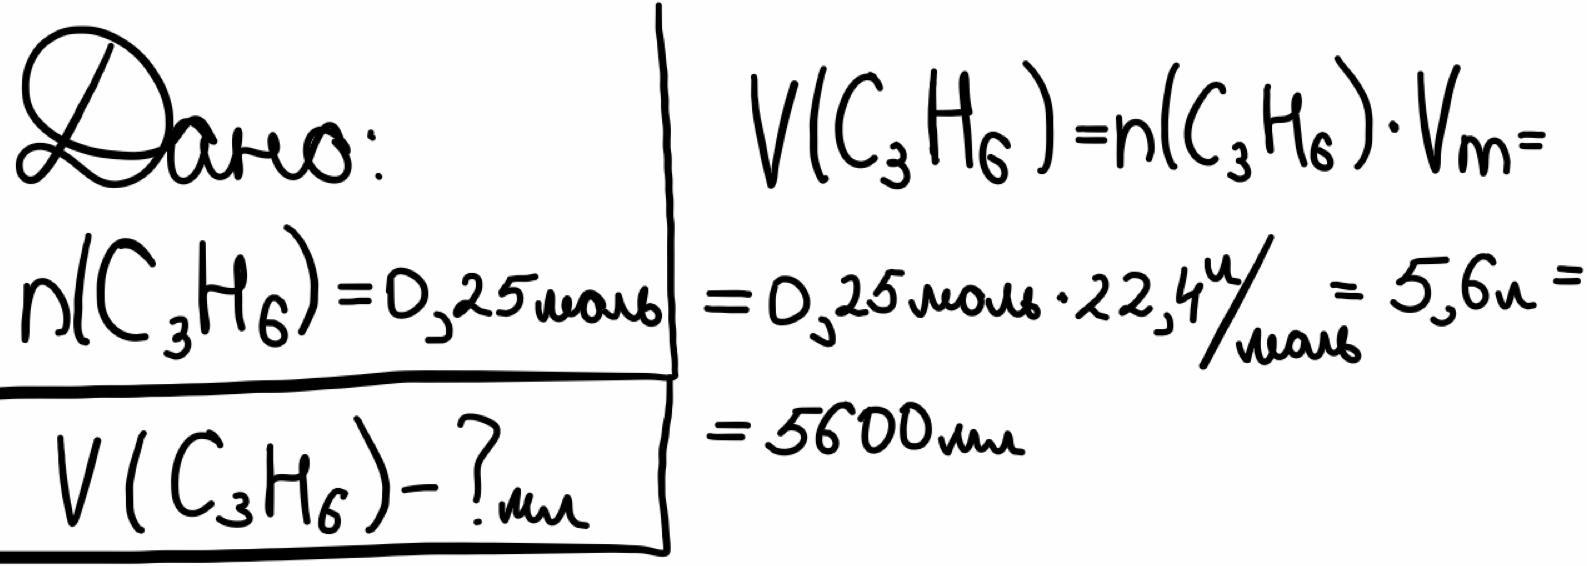 Дано:
n(C₃H₆)=0,25моль
V(C₃H₆)-?мл
V(C₃H₆)=n(C₃H₆)·Vm=
=0,25моль·22,4л/моль=5,6л=
=5600мл